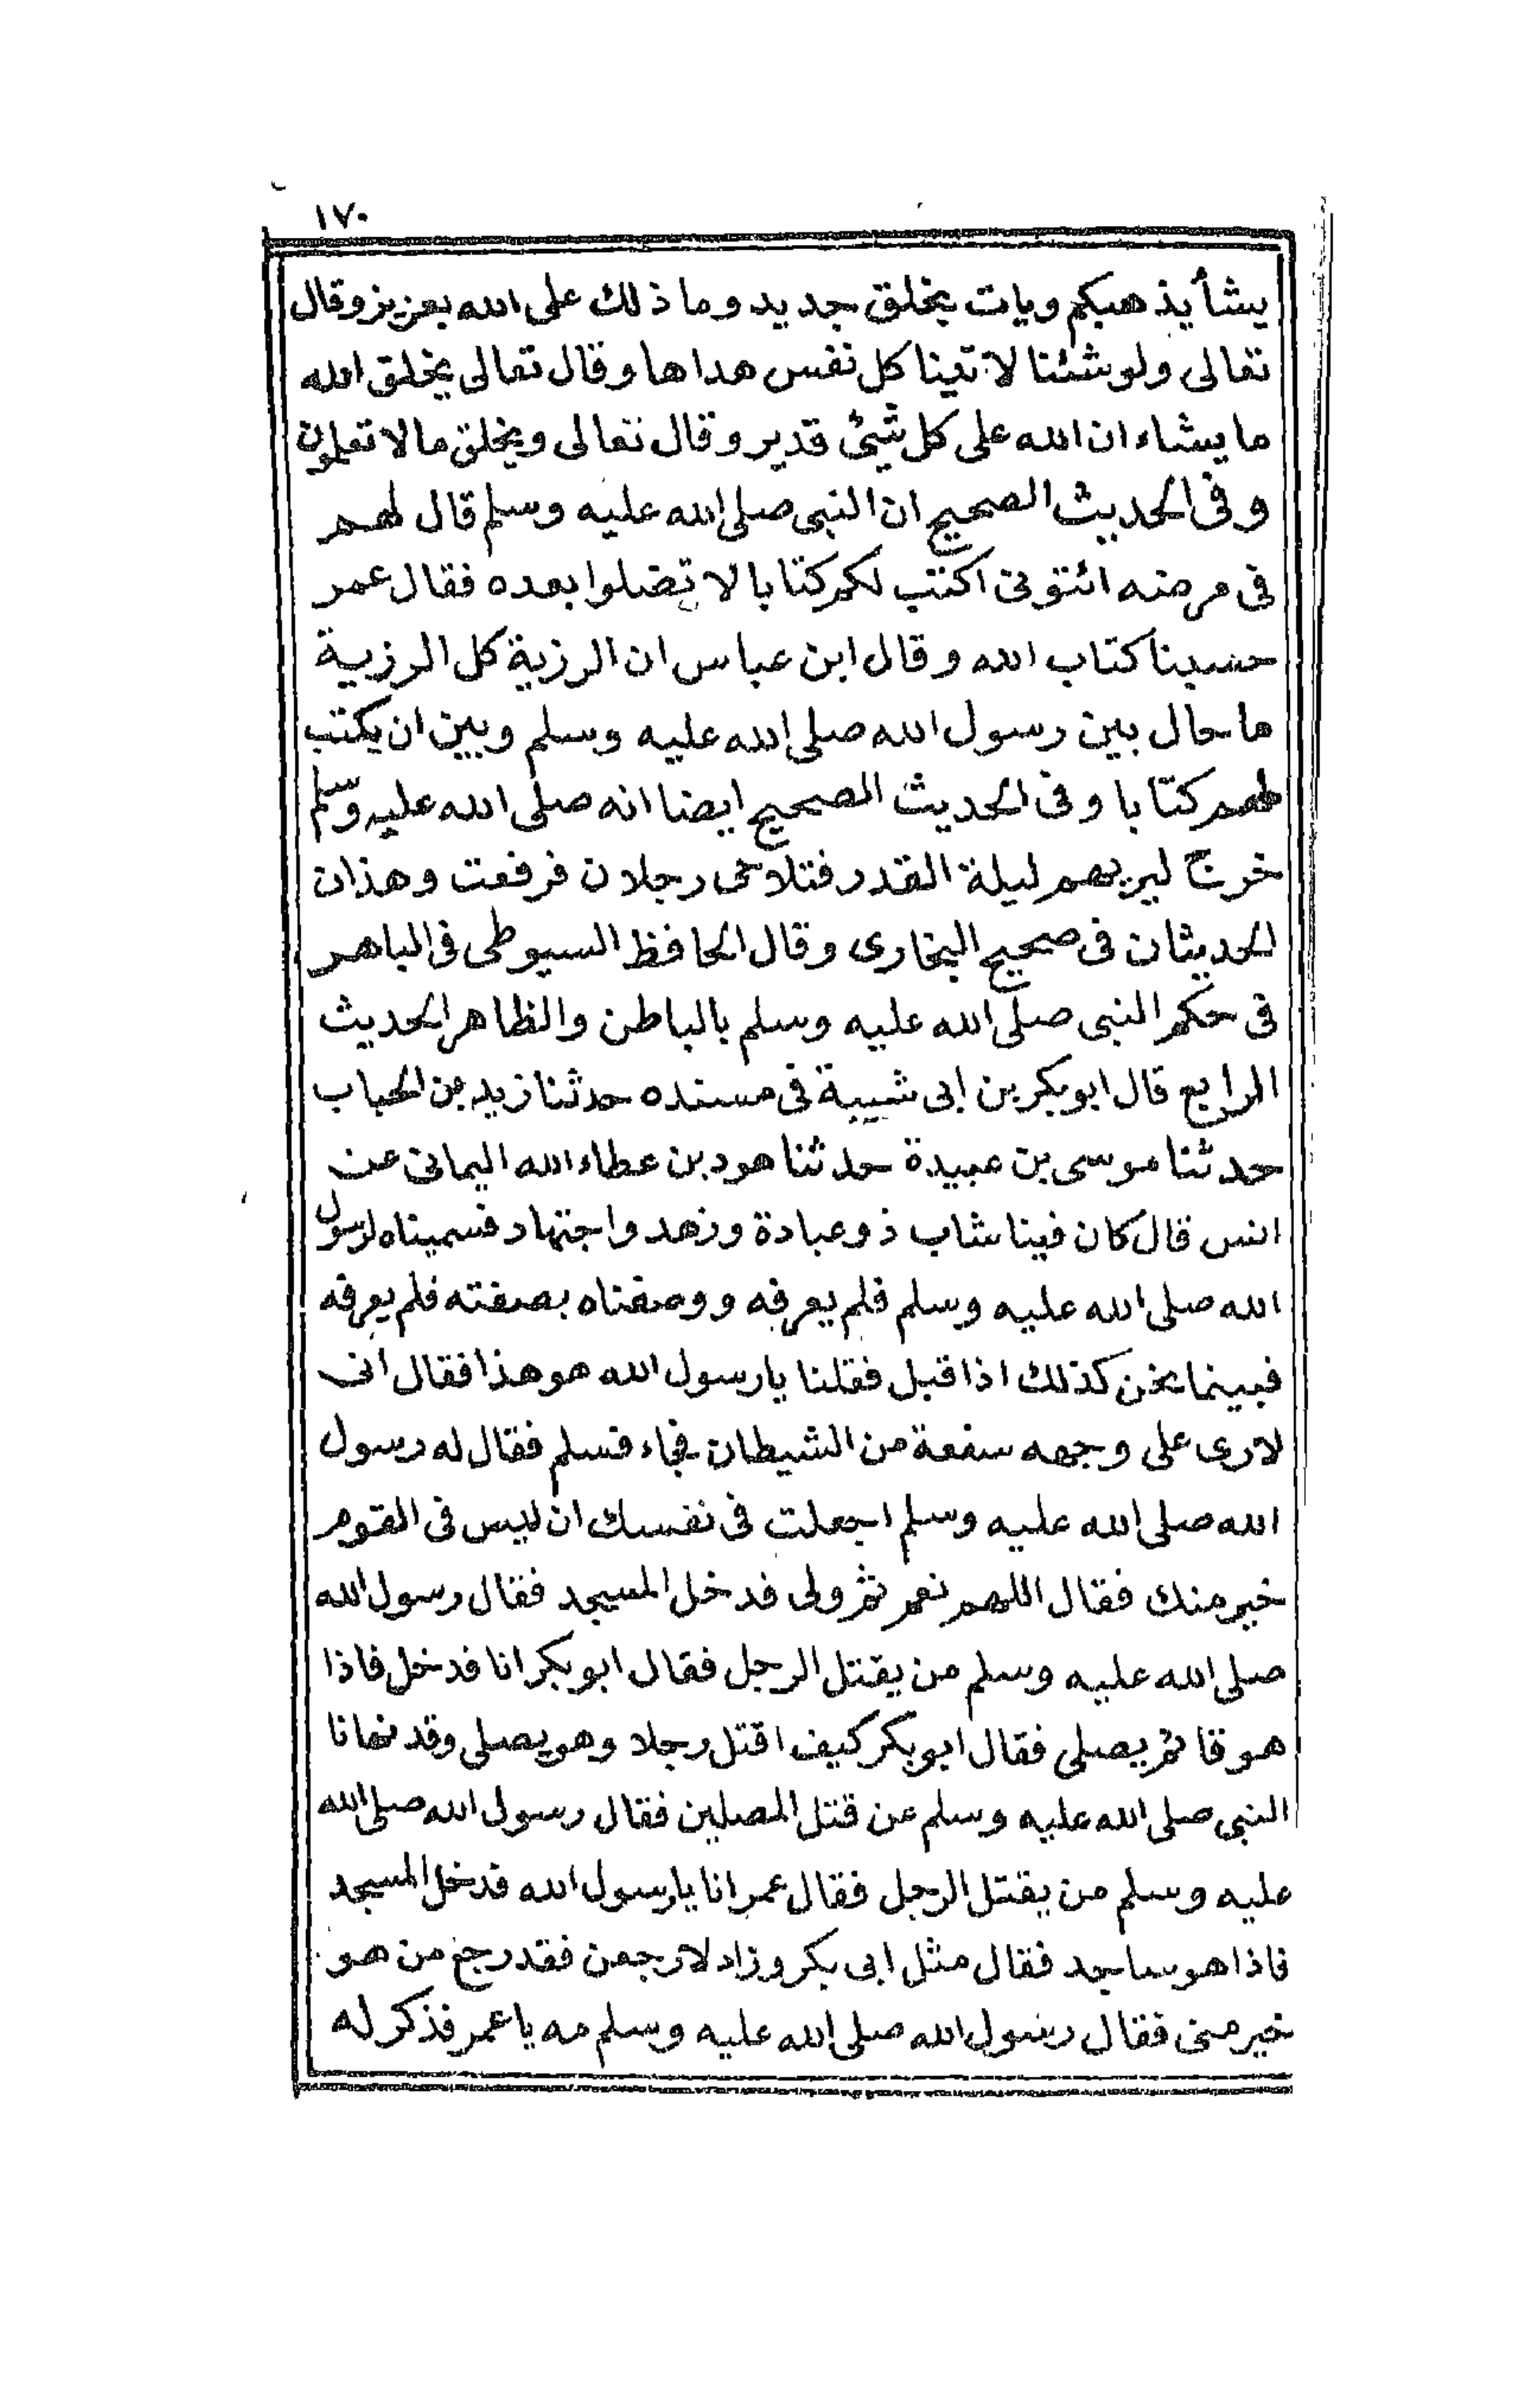 ١٧٠
يشأ يذهبكم ويات بخلق جديد وما ذلك على الله بعزيز وقال
تعالى ولو شئنا لاتينا كل نفس هداها وقال تعالى يخلق الله
ما يشاء ان الله على كل شئ قدير وقال تعالى ويخلق ما لا تعلمون
وفى الحديث الصحيح ان النبى صلى الله عليه وسلم قال لهم
فى مرضه ائتونى اكتب لكم كتابا لا تضلوا بعده فقال عمر
حسبنا كتاب الله وقال ابن عباس ان الرزية كل الرزية
ما حال بين رسول الله صلى الله عليه وسلم وبين ان يكتب
لهم كتابا وفى الحديث الصحيح ايضا انه صلى الله عليه وسلم
خرج ليريهم ليلة القدر فتلاحى رجلان فرفعت وهذان
الحديثان فى صحيح البخارى وقال الحافظ السيوطى فى الباهر
فى حكم النبى صلى الله عليه وسلم بالباطن والظاهر الحديث
الرابع قال ابو بكر بن ابى شيبة فى مسنده حدثنا زيد بن الحباب
حدثنا موسى بن عبيدة حدثنا هود بن عطاء الله اليمانى عن
انس قال كان فينا شاب ذو عبادة وزهد واجتهاد فسميناه لرسول
الله صلى الله عليه وسلم فلم يعرفه ووصفناه بصفته فلم يعرفه
فبينما نحن كذلك اذ اقبل فقلنا يا رسول الله هو هذا فقال انى
لارى على وجهه سفعة من الشيطان فجاء فسلم فقال له رسول
الله صلى الله عليه وسلم اجعلت فى نفسك ان ليس فى القوم
خير منك فقال اللهم نعم ثم ولى فدخل المسجد فقال رسول الله
صلى الله عليه وسلم من يقتل الرجل فقال ابو بكر انا فدخل فاذا
هو قائم يصلى فقال ابو بكر كيف اقتل رجلا وهو يصلى وقد نهانا
النبى صلى الله عليه وسلم عن قتل المصلين فقال رسول الله صلى الله
عليه وسلم من يقتل الرجل فقال عمر انا يا رسول الله فدخل المسجد
فاذا هو ساجد فقال مثل ابى بكر وزاد لارجعن فقد رجع من هو
خير منى فقال رسول الله صلى الله عليه وسلم مه يا عمر فذكر له